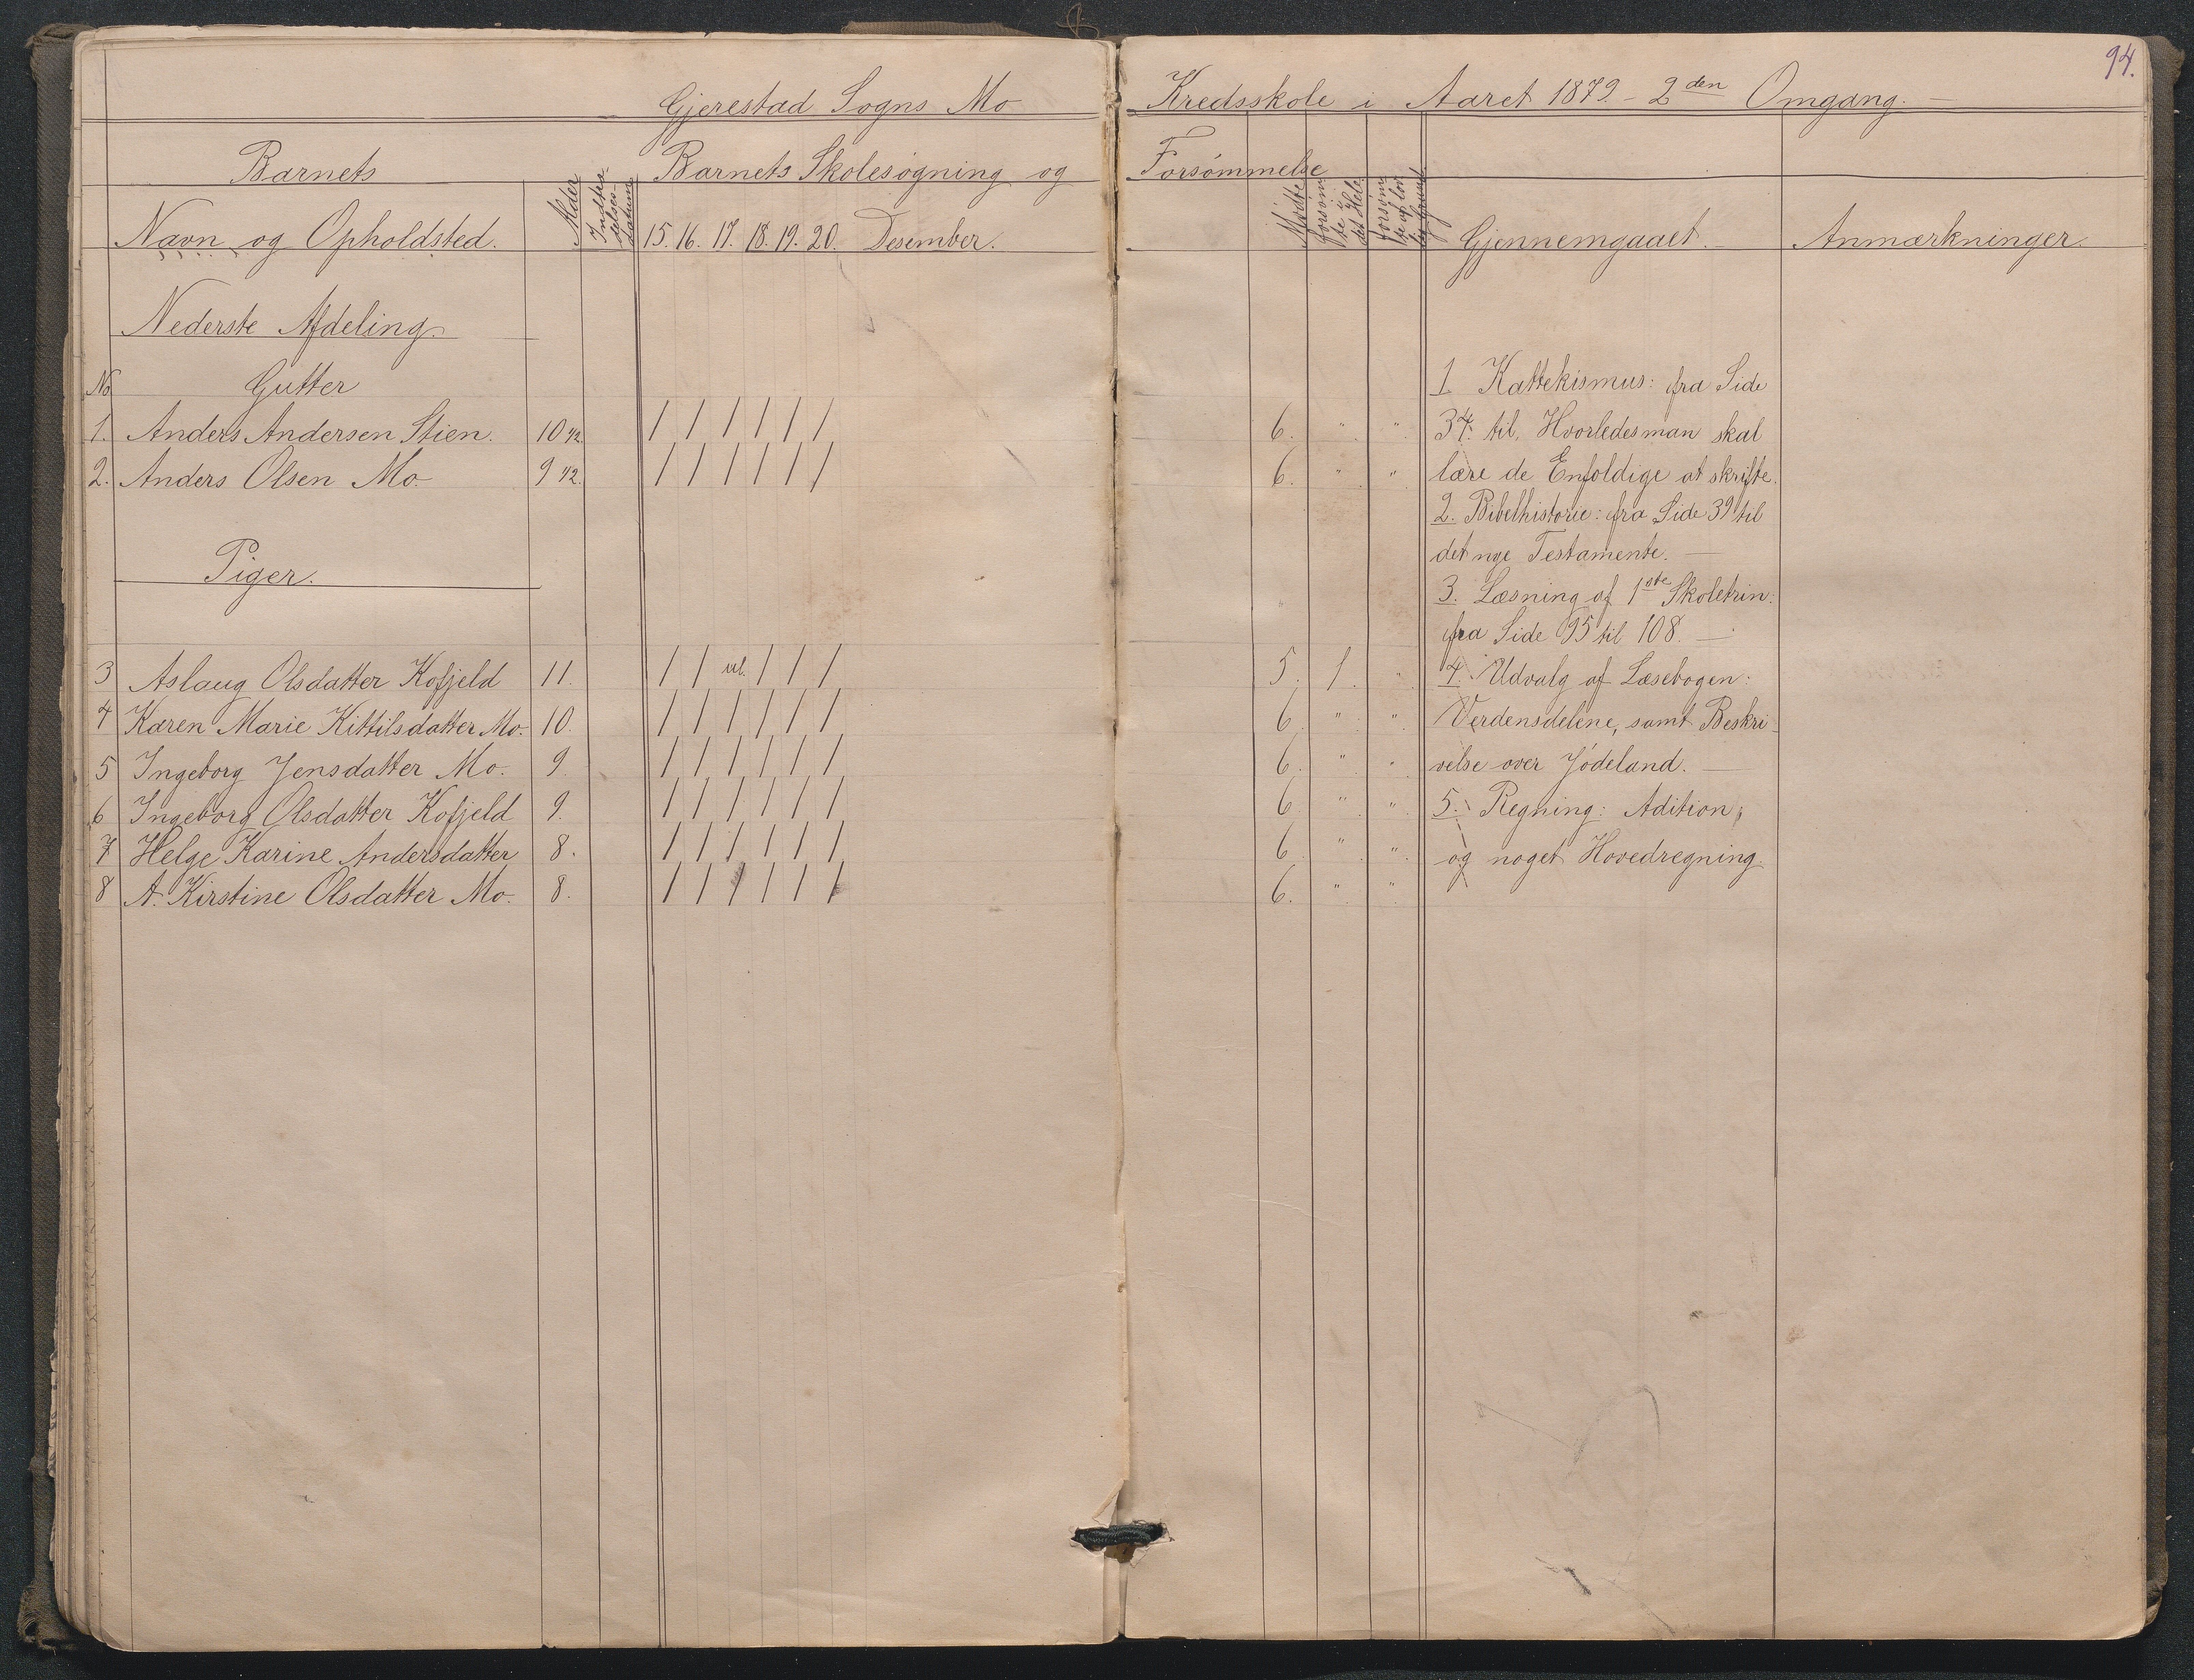 94.
Gjerestad Sogns Mo Kredsskole i Aaret 1879 - 2den Omgang. -
Barnets
Barnets Skolesøgning og Forsømmelse
Navn og Opholdsted.
Alder
Indtrædelsesdatum
15. 16. 17. 18. 19. 20. Desember.
Mødte
Forsømte i det Hele
Forsømte af lovlig Grund
Gjennemgaaet.
Anmærkninger.
Nederste Afdeling.
No Gutter
1. Anders Andersen Stien. 10 1/2. / / / / / / 6. " "
2. Anders Olsen Mo. 9 1/2. / / / / / / 6. " "
Piger.
3 Aslaug Olsdatter Kofjeld 11. / / ul. / / / 5. 1. "
4 Karen Marie Kittilsdatter Mo. 10. / / / / / / 6. " "
5 Ingeborg Jensdatter Mo. 9. / / / / / / 6. " "
6 Ingeborg Olsdatter Kofjeld 9. / / / / / / 6. " "
7 Helge Karine Andersdatter 8. / / / / / / 6. " "
8 A. Kirstine Olsdatter Mo. 8. / / / / / / 6. " "
1 Kattekismus: fra Side
34. til, Hvorledes man skal
lære de Enfoldige at skrifte.
2. Bibelhistorie: fra Side 39 til
det nye Testamente. -
3. Læsning af 1ste Skoletrin:
fra Side 95 til 108. -
4. Udvalg af Læsebogen:
Verdensdelene, samt Beskri-
velse over Jødeland. -
5. Regning: Adition,
og noget Hovedregning